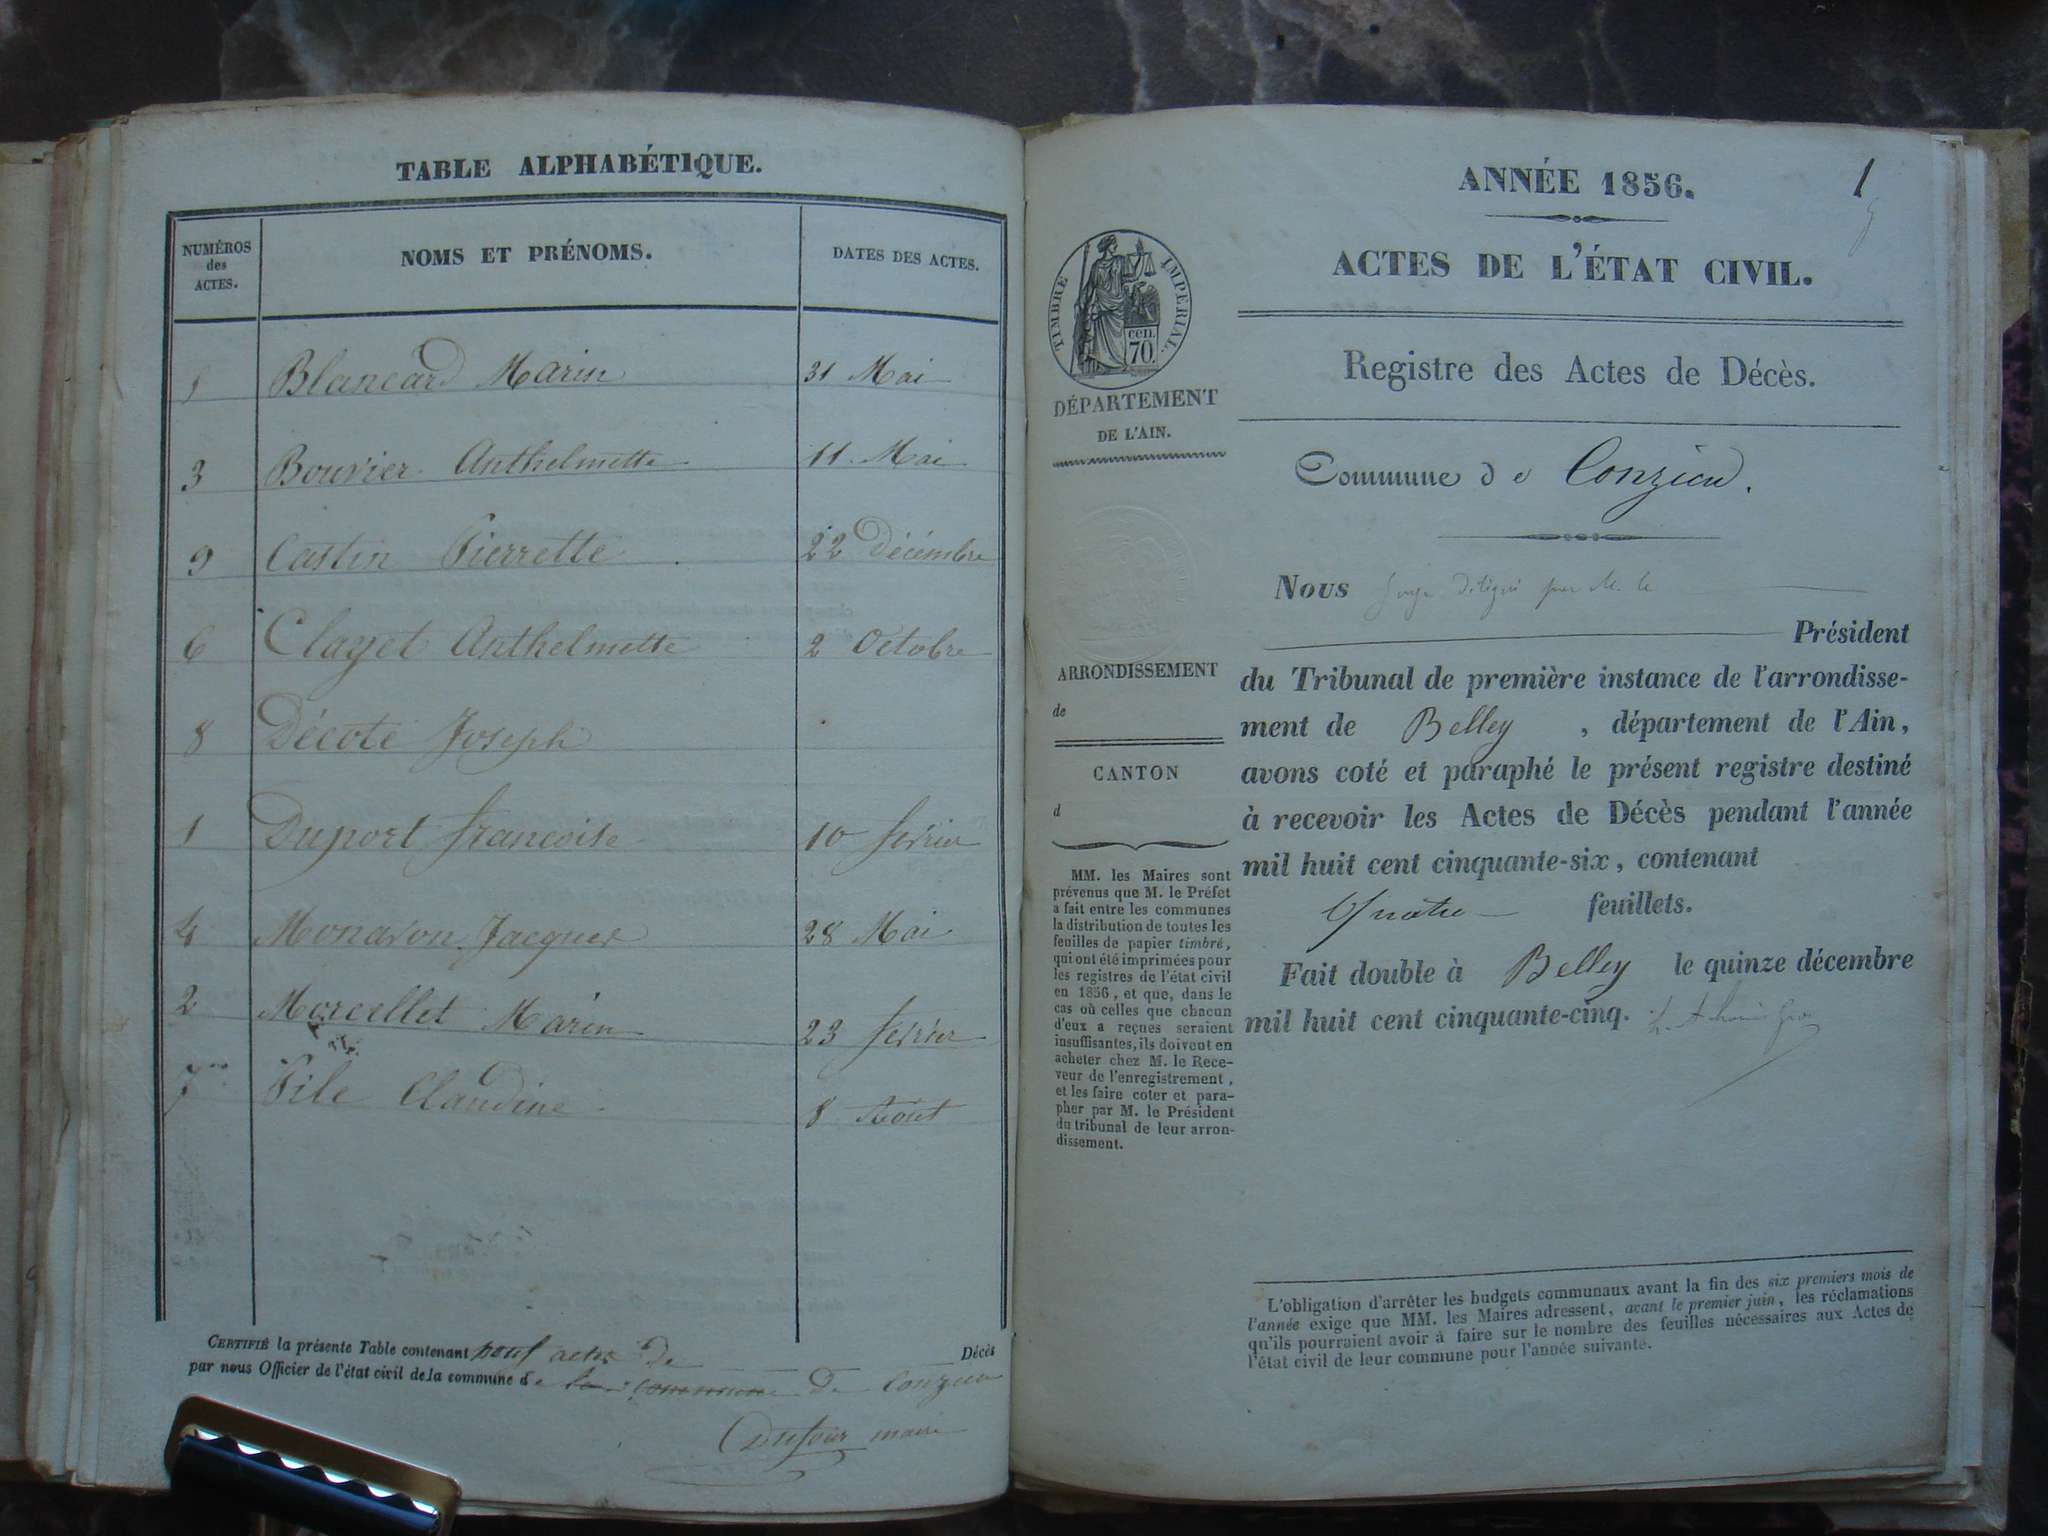 TABLE ALPHABÉTIQUE.
NUMÉROS des ACTES. NOMS ET PRÉNOMS. DATES DES ACTES.
5 Blancard Marin 31 Mai
3 Bouvier Anthelmette 11 Mai
9 Castin Pierrette 22 Décembre
6 Clayet Anthelmette 2 Octobre
8 Décoté Joseph
1 Duport francoise 10 fevrier
4 Monavon Jacques 28 Mai
2 Morcellet Marin 23 fevrier
7 Pile Claudine 8 Août
CERTIFIÉ la présente Table contenant neuf actes de Décès
par nous Officier de l'état civil de la commune de la commune de Conzieu
Dufour maire
1
ANNÉE 1856.
ACTES DE L'ÉTAT CIVIL.
Registre des Actes de Décès.
TIMBRE IMPÉRIAL.
cen.
70.
DÉPARTEMENT
DE L'AIN.
ARRONDISSEMENT
de
CANTON
d
MM. les Maires sont
prévenus que M. le Préfet
a fait entre les communes
la distribution de toutes les
feuilles de papier timbré,
qui ont été imprimées pour
les registres de l'état civil
en 1856, et que, dans le
cas où celles que chacun
d'eux a reçues seraient
insuffisantes, ils doivent en
acheter chez M. le Rece-
veur de l'enregistrement,
et les faire coter et para-
pher par M. le Président
du tribunal de leur arron-
dissement.
Commune de Conzieu.
Nous juge délégué par M. le
Président
du Tribunal de première instance de l'arrondisse-
ment de Belley, département de l'Ain,
avons coté et paraphé le présent registre destiné
à recevoir les Actes de Décès pendant l'année
mil huit cent cinquante-six, contenant
Quatre feuillets.
Fait double à Belley le quinze décembre
mil huit cent cinquante-cinq.
L'obligation d'arrêter les budgets communaux avant la fin des six premiers mois de
l'année exige que MM. les Maires adressent, avant le premier juin, les réclamations
qu'ils pourraient avoir à faire sur le nombre des feuilles nécessaires aux Actes de
l'état civil de leur commune pour l'année suivante.